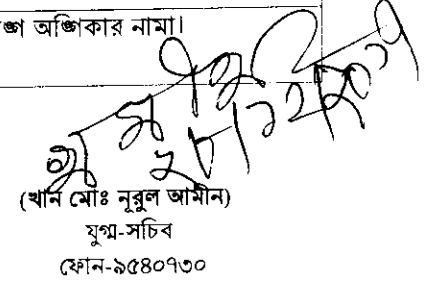 অঙ্গিকার নামা।
(খান মোঃ নূরুল আমীন)
যুগ্ম-সচিব
ফোন-৯৫৪০৭৩০